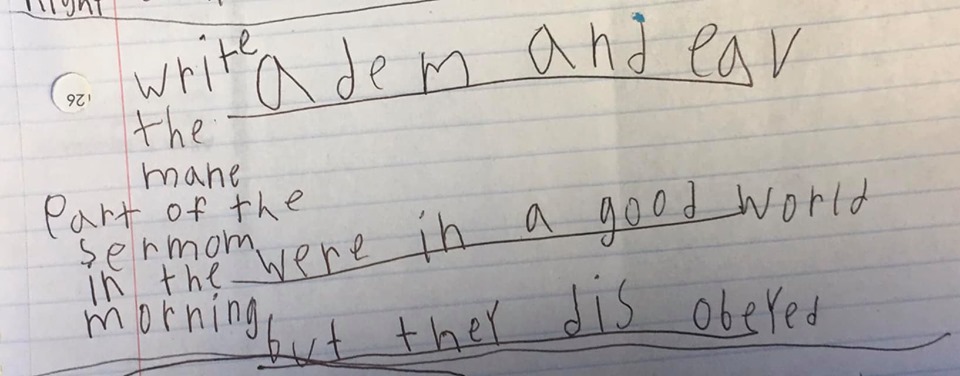 write
the
mane
Part of the
sermom
in the
morning
adem and eav
were in a good world
but they dis obeyed